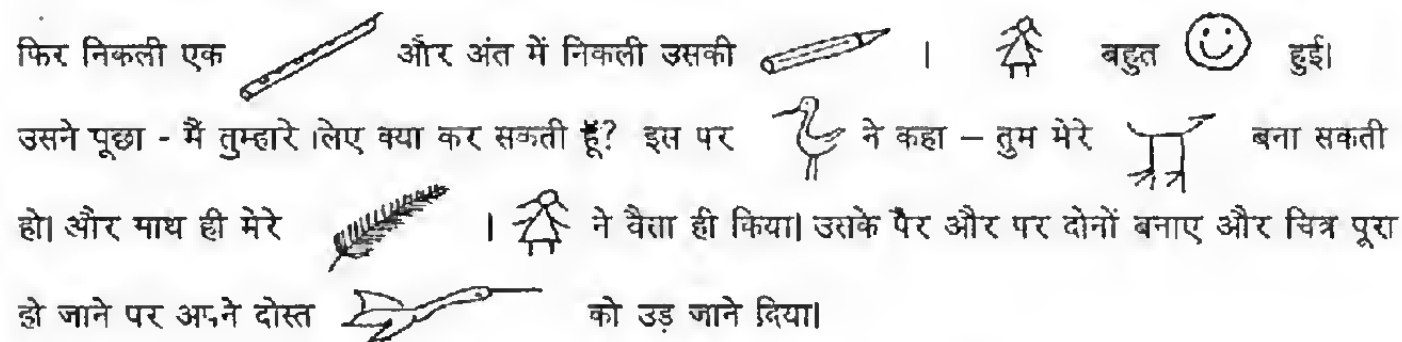 फिर निकली एक और अंत में निकली उसकी । बहुत हुई।
उसने पूछा - मैं तुम्हारे लिए क्या कर सकती हूँ? इस पर ने कहा – तुम मेरे बना सकती
हो। और साथ ही मेरे । ने वैसा ही किया। उसके पैर और पर दोनों बनाए और चित्र पूरा
हो जाने पर अपने दोस्त को उड़ जाने दिया।